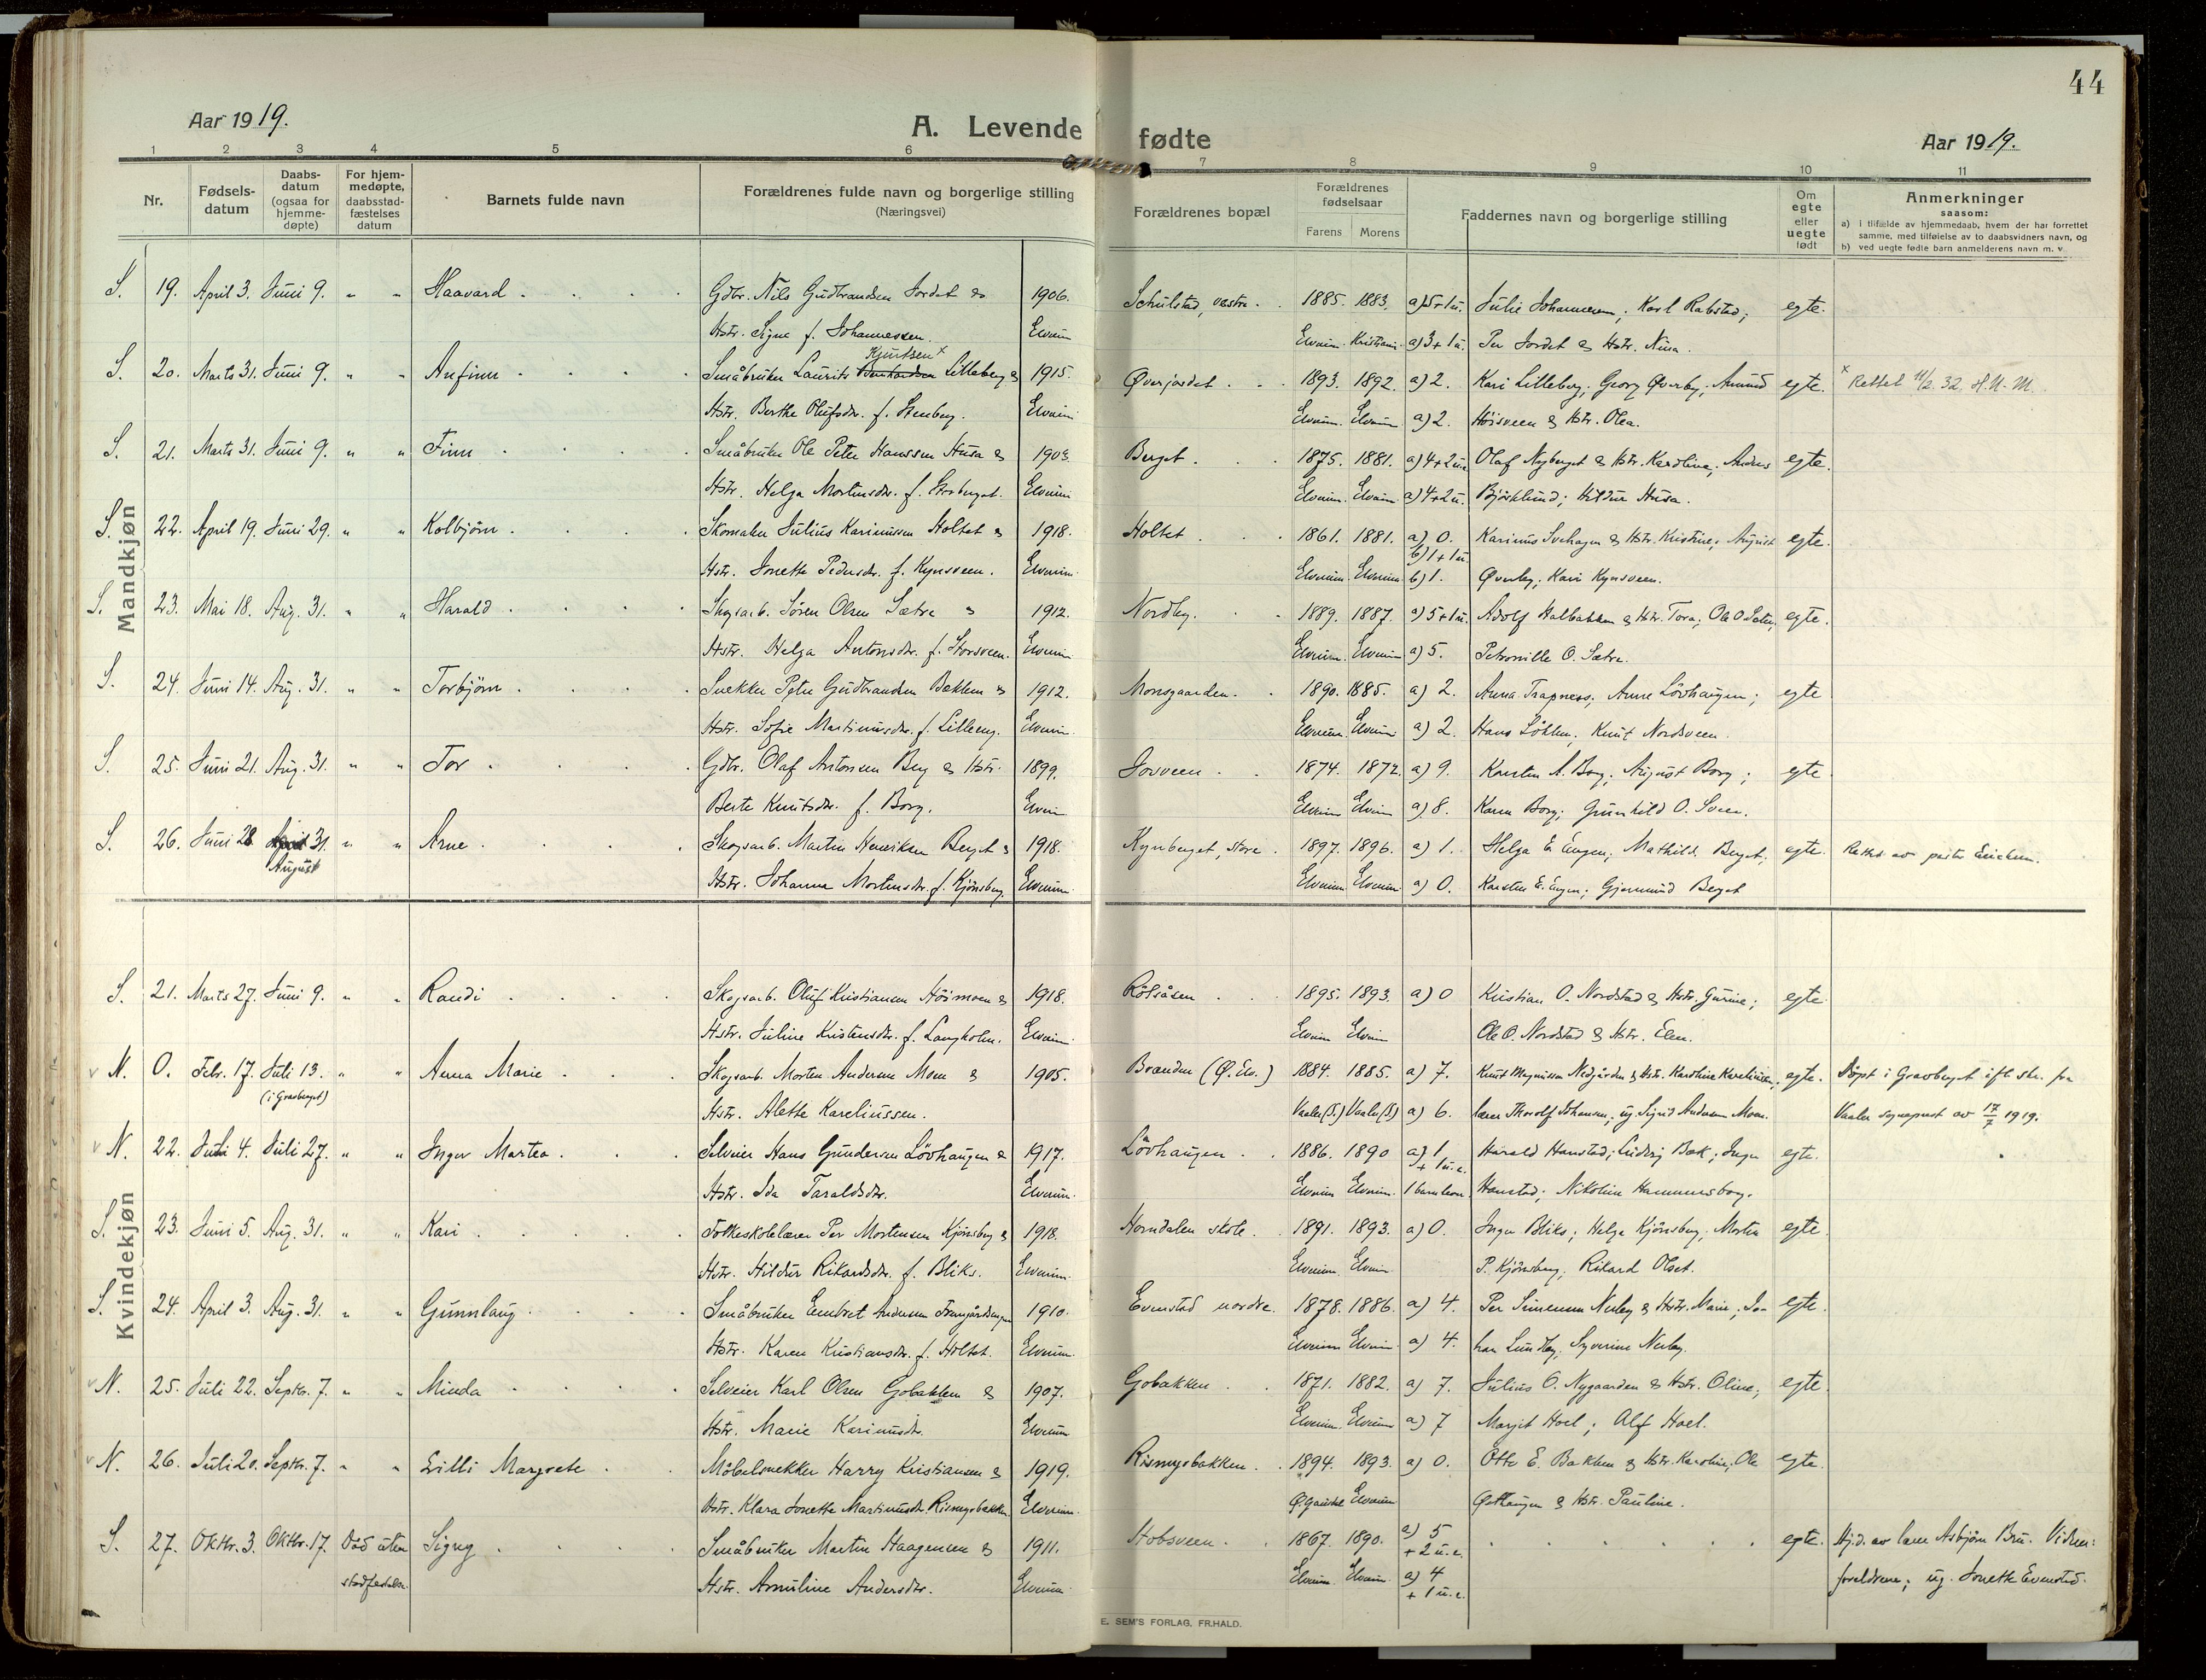 44
Aar 1919.
A. Levende fødte
Aar 1919.
1 2 3 4 5 6 7 8 9 10 11
Nr.
Fødsels-
datum
Daabs-
datum
(ogsaa for
hjemme-
døpte)
For hjem-
medøpte,
daabsstad-
fæstelses
datum
Barnets fulde navn
Forældrenes fulde navn og borgerlige stilling
(Næringsvei)
Forældrenes bopæl
Forældrenes
fødselsaar
Farens Morens
Faddernes navn og borgerlige stilling
Om
egte
eller
uegte
født
Anmerkninger
saasom:
a) i tilfælde av hjemmedaab, hvem der har forrettet
samme, med tilføielse av to daabsvidners navn, og
b) ved uegte fødte barn anmelderens navn m. v.
Mandkjøn
S. 19. April 3. Juni 9. " " Haavard . Gdbr. Nils Gudbrandsen Jordet & 1906. Schulstad, vestre . 1885. 1883. a) 5+1u. Julie Johannessen; Karl Rabstad; egte.
Hstr. Signe f. Johannessen. Elverum Elverum. Kristiania a) 3+1u. Per Jordet & Hstr. Nina.
Kjuntsen x
S. 20. Marts 31. Juni 9. " " Anfinn . Småbruker Laurits Lilleberg & 1915. Øverjordet . 1893. 1892. a) 2. Kari Lilleberg; Georg Øverby; Amund egte. x Rettet 11/2. 32. H.N.M.
Hstr. Berthe Olufsdtr. f. Stenberg. Elverum Elverum. Elverum a) 2. Höisveen & Hstr. Olea.
S. 21. Marts 31. Juni 9. " " Finn . Småbruker Ole Peter Hanssen Husa & 1903. Berget . 1875. 1881. a) 4+2u. Olaf Nyberget & Hstr. Karoline; Anders egte.
Hstr. Helga Mortensdtr. f. Storberget. Elverum Elverum. Elverum a) 4+2u. Björklund; Hildur Husa.
S. 22. April 19. Juni 29. " " Kolbjörn . Skomaker Julius Karinusen Holtet & 1918. Holtet . 1861. 1881. a) 0. Karinus Svehagen & Hstr. Kristine; August egte.
b) 1+1u.
Hstr. Jonette Pedersdtr. f. Kynsveen. Elverum. Elverum. Elverum b) 1. Øverby; Kari Kynsveen.
S. 23. Mai 18. Aug. 31. " " Harald . Skogsarb. Sören Olsen Sætre & 1912. Nordby. 1889. 1887. a) 5+1u. Adolf Halbakken & Hstr. Tora; Ole O Seter; egte.
Hstr. Helga Antonsdtr. f. Storsveen. Elverum Elverum. Elverum a) 5. Petronille O. Sætre.
S. 24. Juni 14. Aug. 31. " " Torbjörn . Snekker Peter Gudbrandsen Bakken & 1912. Monsgaarden . 1890. 1885. a) 2. Anna Trapness; Anne Lövhaugen; egte
Hstr. Sofie Martinusdtr. f. Lilleeng. Elverum. Elverum. Elverum a) 2. Hans Löklen; Knut Nordsveen.
S. 25. Juni 21. Aug. 31. " " Tor . Gdbr. Olaf Antonsen Berg & Hstr. 1899. Sorveen . 1874. 1872. a) 9. Karsten A. Borg; August Borg; egte
Berte Knutsdtr. f. Borg. Elverum Elverum Elverum a) 8. Karen Borg; Gunhild O. Sveen.
S. 26. Juni 28 31. " " Arne . Skogsarb. Martin Henriksen Berget & 1918. Kynberget, store . 1897. 1896. a) 1. Helga E. Engen; Mathilde Berget; egte. Rettet av pastor Erichsen.
August Hstr. Johanna Mortensdtr. f. Kjönsberg. Elverum. Elverum Elverum a) 0. Karsten E. Engen; Gjermund Berget
Kvindekjøn
S. 21. Marts 27. Juni 9. " " Randi . Skogsarb. Oluf Kristiansen Höimoen & 1918. Rölsåsen . 1895. 1893. a) 0 Kristian O. Nordstad & Hstr. Gurine; egte
Hstr. Juline Kristensdtr. f. Langholm. Elverum Elverum Elverum Ole O. Nordstad & Hstr. Elen.
N. 0. Febr. 17. Juli 13. " " Anna Marie . Skogsarb. Morten Andersen Moen & 1905. Branden (Ø. Elv.) 1884. 1885. a) 7. Knut Magnussen Nedgården & Hstr. Karoline Kareliusen; egte. Döpt i Gravberget ifl. skr. fra
(i Gravberget) Hstr. Alette Kareliussen. Vaaler (S.) Vaaler (S) a) 6. lærer Thorolf Johansen; ug. Sigrid Andersen Moen. Vaaler sogneprest av 17/7 1919.
N. 22. Juli 4. Juli 27. " " Inger Martea . Selveier Hans Gundersen Lövhaugen & 1917. Lövhaugen . 1886. 1890 a) 1 + 1u.e. Harald Hanstad; Ludvig Bek; Inga egte.
Hstr. Ida Taraldsdtr. Elverum. Elverum Elverum. 1 barn lever. Hanstad; Nikoline Hammersborg.
S. 23. Juni 5. Aug. 31. " " Kari . Folkeskolelærer Per Mortensen Kjönsberg & 1918. Horndalen skole . 1891. 1893. a) 0. Inga Bliks; Helga Kjönsberg; Morten egte.
Hstr. Hildur Rikardsdtr. f. Bliks. Elverum. Elverum. Elverum P. Kjönsberg; Rikard Olset.
S. 24. April 3. Aug. 31. " " Gunnlaug . Småbruker Embret Andersen Framgårdsengen 1910. Evenstad nordre. 1878. 1886. a) 4. Per Simensen Nerby & Hstr. Marie; Jo- egte.
Hstr. Karen Kristiansdtr. f. Holtet. Elverum. Elverum Elverum a) 4. han Lundby; Syverine Nerby.
N. 25. Juli 22. Septbr. 7. " " Minda . Selveier Karl Olsen Gobakken & 1907. Gobakken . 1871. 1882. a) 7. Julius O. Nygaarden & Hstr. Oline; egte.
Hstr. Marie Karinusdtr. Elverum Elverum. Elverum a) 7 Margit Hoel; Alf Hoel.
N. 26. Juli 20. Septbr. 7. " " Lilli Margrete . Möbelsnekker Harry Kristiansen & 1919. Rismyrbakken . 1894. 1893. a) 0. Otto E. Bakken & Hstr. Karoline; Ole egte.
Hstr. Klara Jonette Martinusdtr. Rismyrbakken Elverum. Ø. Gausdal Elverum Østhaugen & Hstr. Pauline.
S. 27. Oktbr. 3. Oktbr. 17. Död uten Signy . Småbruker Martin Haagensen & 1911. Stobsveen . 1867. 1890. a) 5 + 2u.e. egte. Hj.d. av lærer Asbjörn Bru. Vidner:
stadfestelse. Hstr. Amuline Andersdtr. Elverum Elverum. Elverum a) 4 + 1u.e. foreldrene; ug. Jonette Evenstad.
E. SEM'S FORLAG, FR.HALD.